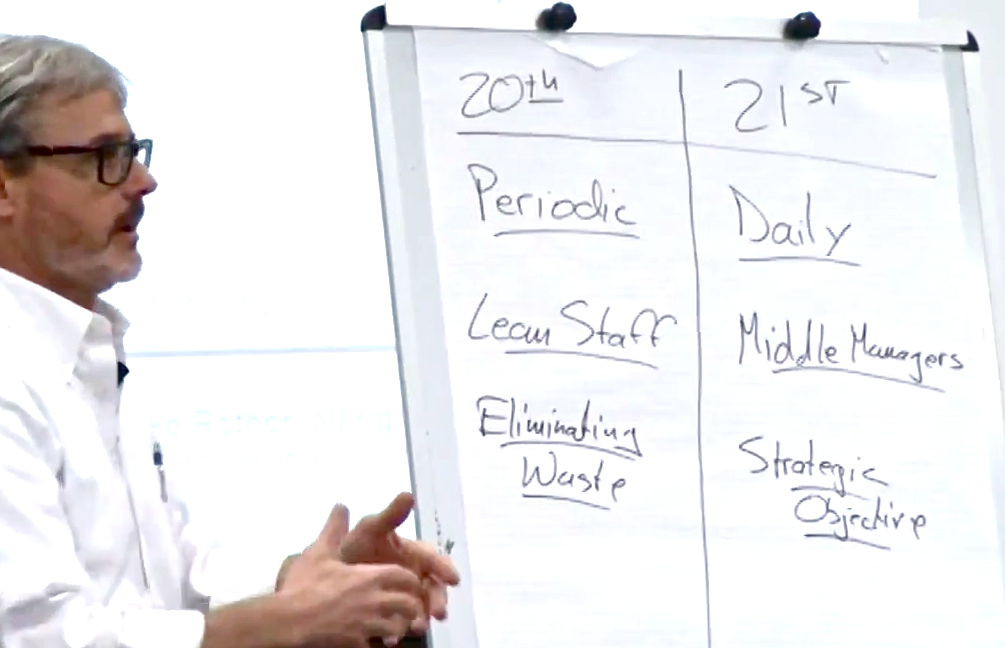 20th
21ST
Periodic
Daily
Lean Staff
Middle Managers
Eliminating
Waste
Strategic
Objective